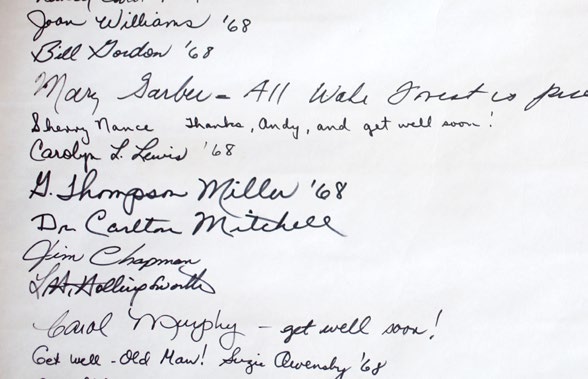 Joan Williams '68
Bill Gordon '68
Mary Garber - All Wake Forest is
Sherry Nance Thanks, Andy, and get well soon!
Carolyn L. Lewis '68
G. Thompson Miller '68
Dr. Carlton Mitchell
Jim Chapman
Hollingsworth
Carol Murphy - get well soon!
Get well - Old Man! Suzie Owensby '68